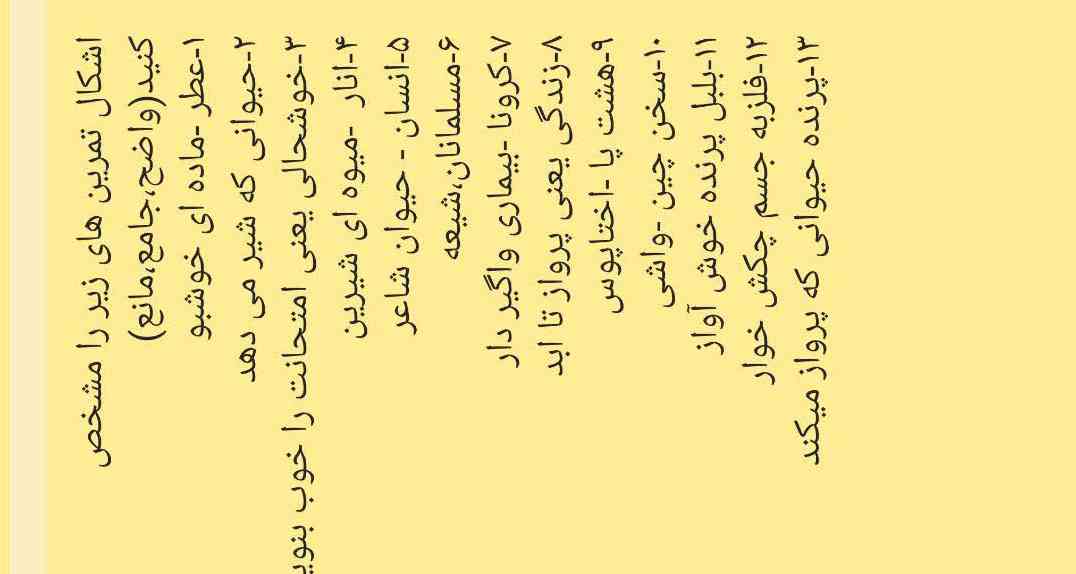 اشکال تمرین های زیر را مشخص
کنید(واضح،جامع،مانع)
۱-عطر -ماده ای خوشبو
۲-حیوانی که شیر می دهد
۳-خوشحالی یعنی امتحانت را خوب
۴-انار -میوه ای شیرین
۵-انسان - حیوان شاعر
۶-مسلمانان،شیعه
۷-کرونا -بیماری واگیر دار
۸-زندگی یعنی پرواز تا ابد
۹-هشت پا -اختاپوس
۱۰-سخن چین -واشی
۱۱-بلبل پرنده خوش آواز
۱۲-فلزبه جسم چکش خوار
۱۳-پرنده حیوانی که پرواز میکند